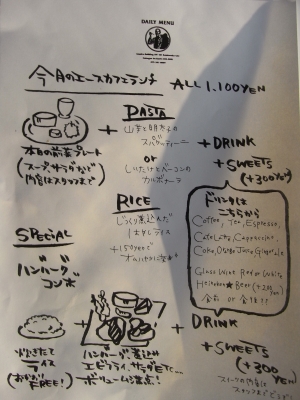 DAILY MENU
今月のエースカフェランチ ALL 1,100YEN
PASTA
山芋と明太子の
スパゲッティー
or
しいたけとベーコンの
カルボナーラ
本日の前菜プレート
(スープ、サラダなど
内容はスタッフまで)
+ DRINK
+ SWEETS
(+300yen)
RICE
じっくり煮込んだ
ハヤシライス
+150yenで
ドリンクは
こちらから
Coffee, Tea, Espresso,
Cafe Latte, Cappuccino,
Coke, Orange Juice, Gingerale
Glass Wine Red or White
Heineken ★ Beer (+200yen)
SPECIAL
ハンバーグ
コンボ
炊きたて
ライス
(おかわり
FREE!)
ハンバーグ、煮込み
エビフライ、サラダETC...
ボリューム満点!
+ DRINK
+ SWEETS
(+300
yen)
スイーツの内容は
スタッフまでどうぞ